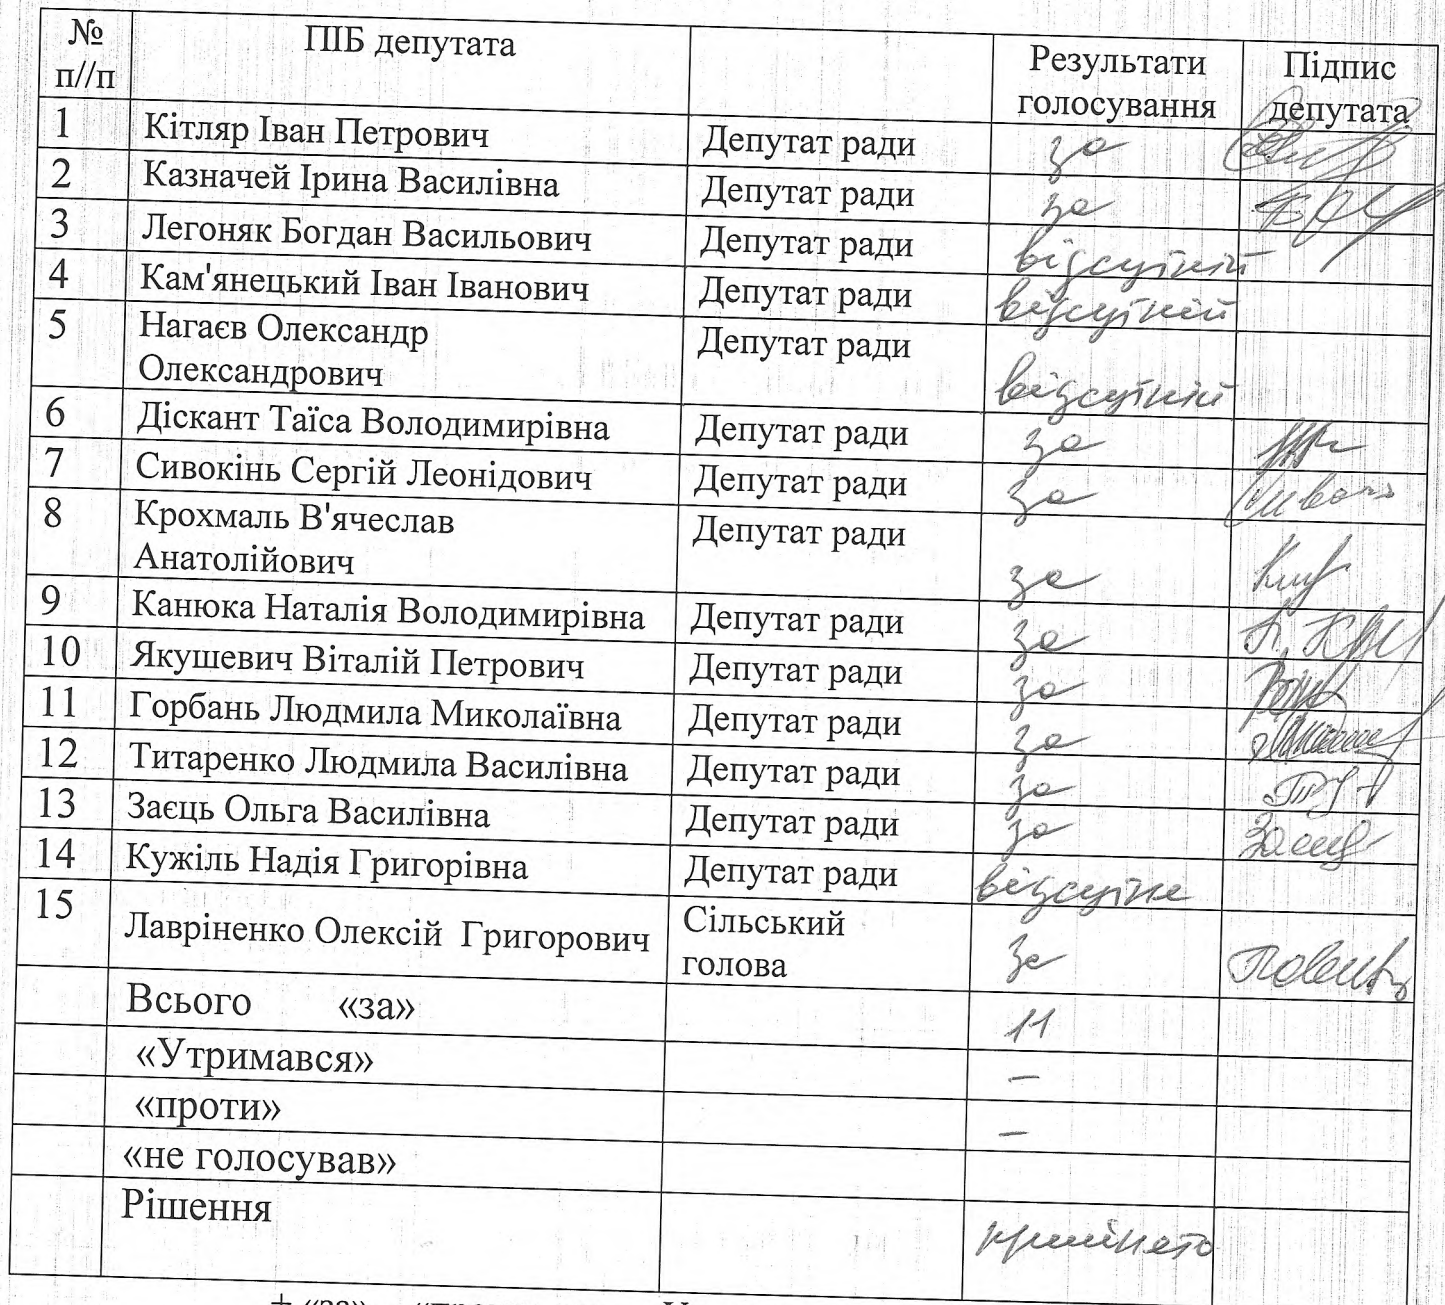 № п//п ПІБ депутата Результати голосування Підпис депутата
1 Кітляр Іван Петрович Депутат ради за
2 Казначей Ірина Василівна Депутат ради за
3 Легоняк Богдан Васильович Депутат ради відсутній
4 Кам'янецький Іван Іванович Депутат ради відсутній
5 Нагаєв Олександр Олександрович Депутат ради відсутній
6 Діскант Таїса Володимирівна Депутат ради за
7 Сивокінь Сергій Леонідович Депутат ради за
8 Крохмаль В'ячеслав Анатолійович Депутат ради за
9 Канюка Наталія Володимирівна Депутат ради за
10 Якушевич Віталій Петрович Депутат ради за
11 Горбань Людмила Миколаївна Депутат ради за
12 Титаренко Людмила Василівна Депутат ради за
13 Заєць Ольга Василівна Депутат ради за
14 Кужіль Надія Григорівна Депутат ради відсутня
15 Лавріненко Олексій Григорович Сільський голова за
Всього «за» 11
«Утримався» –
«проти» –
«не голосував»
Рішення прийнято